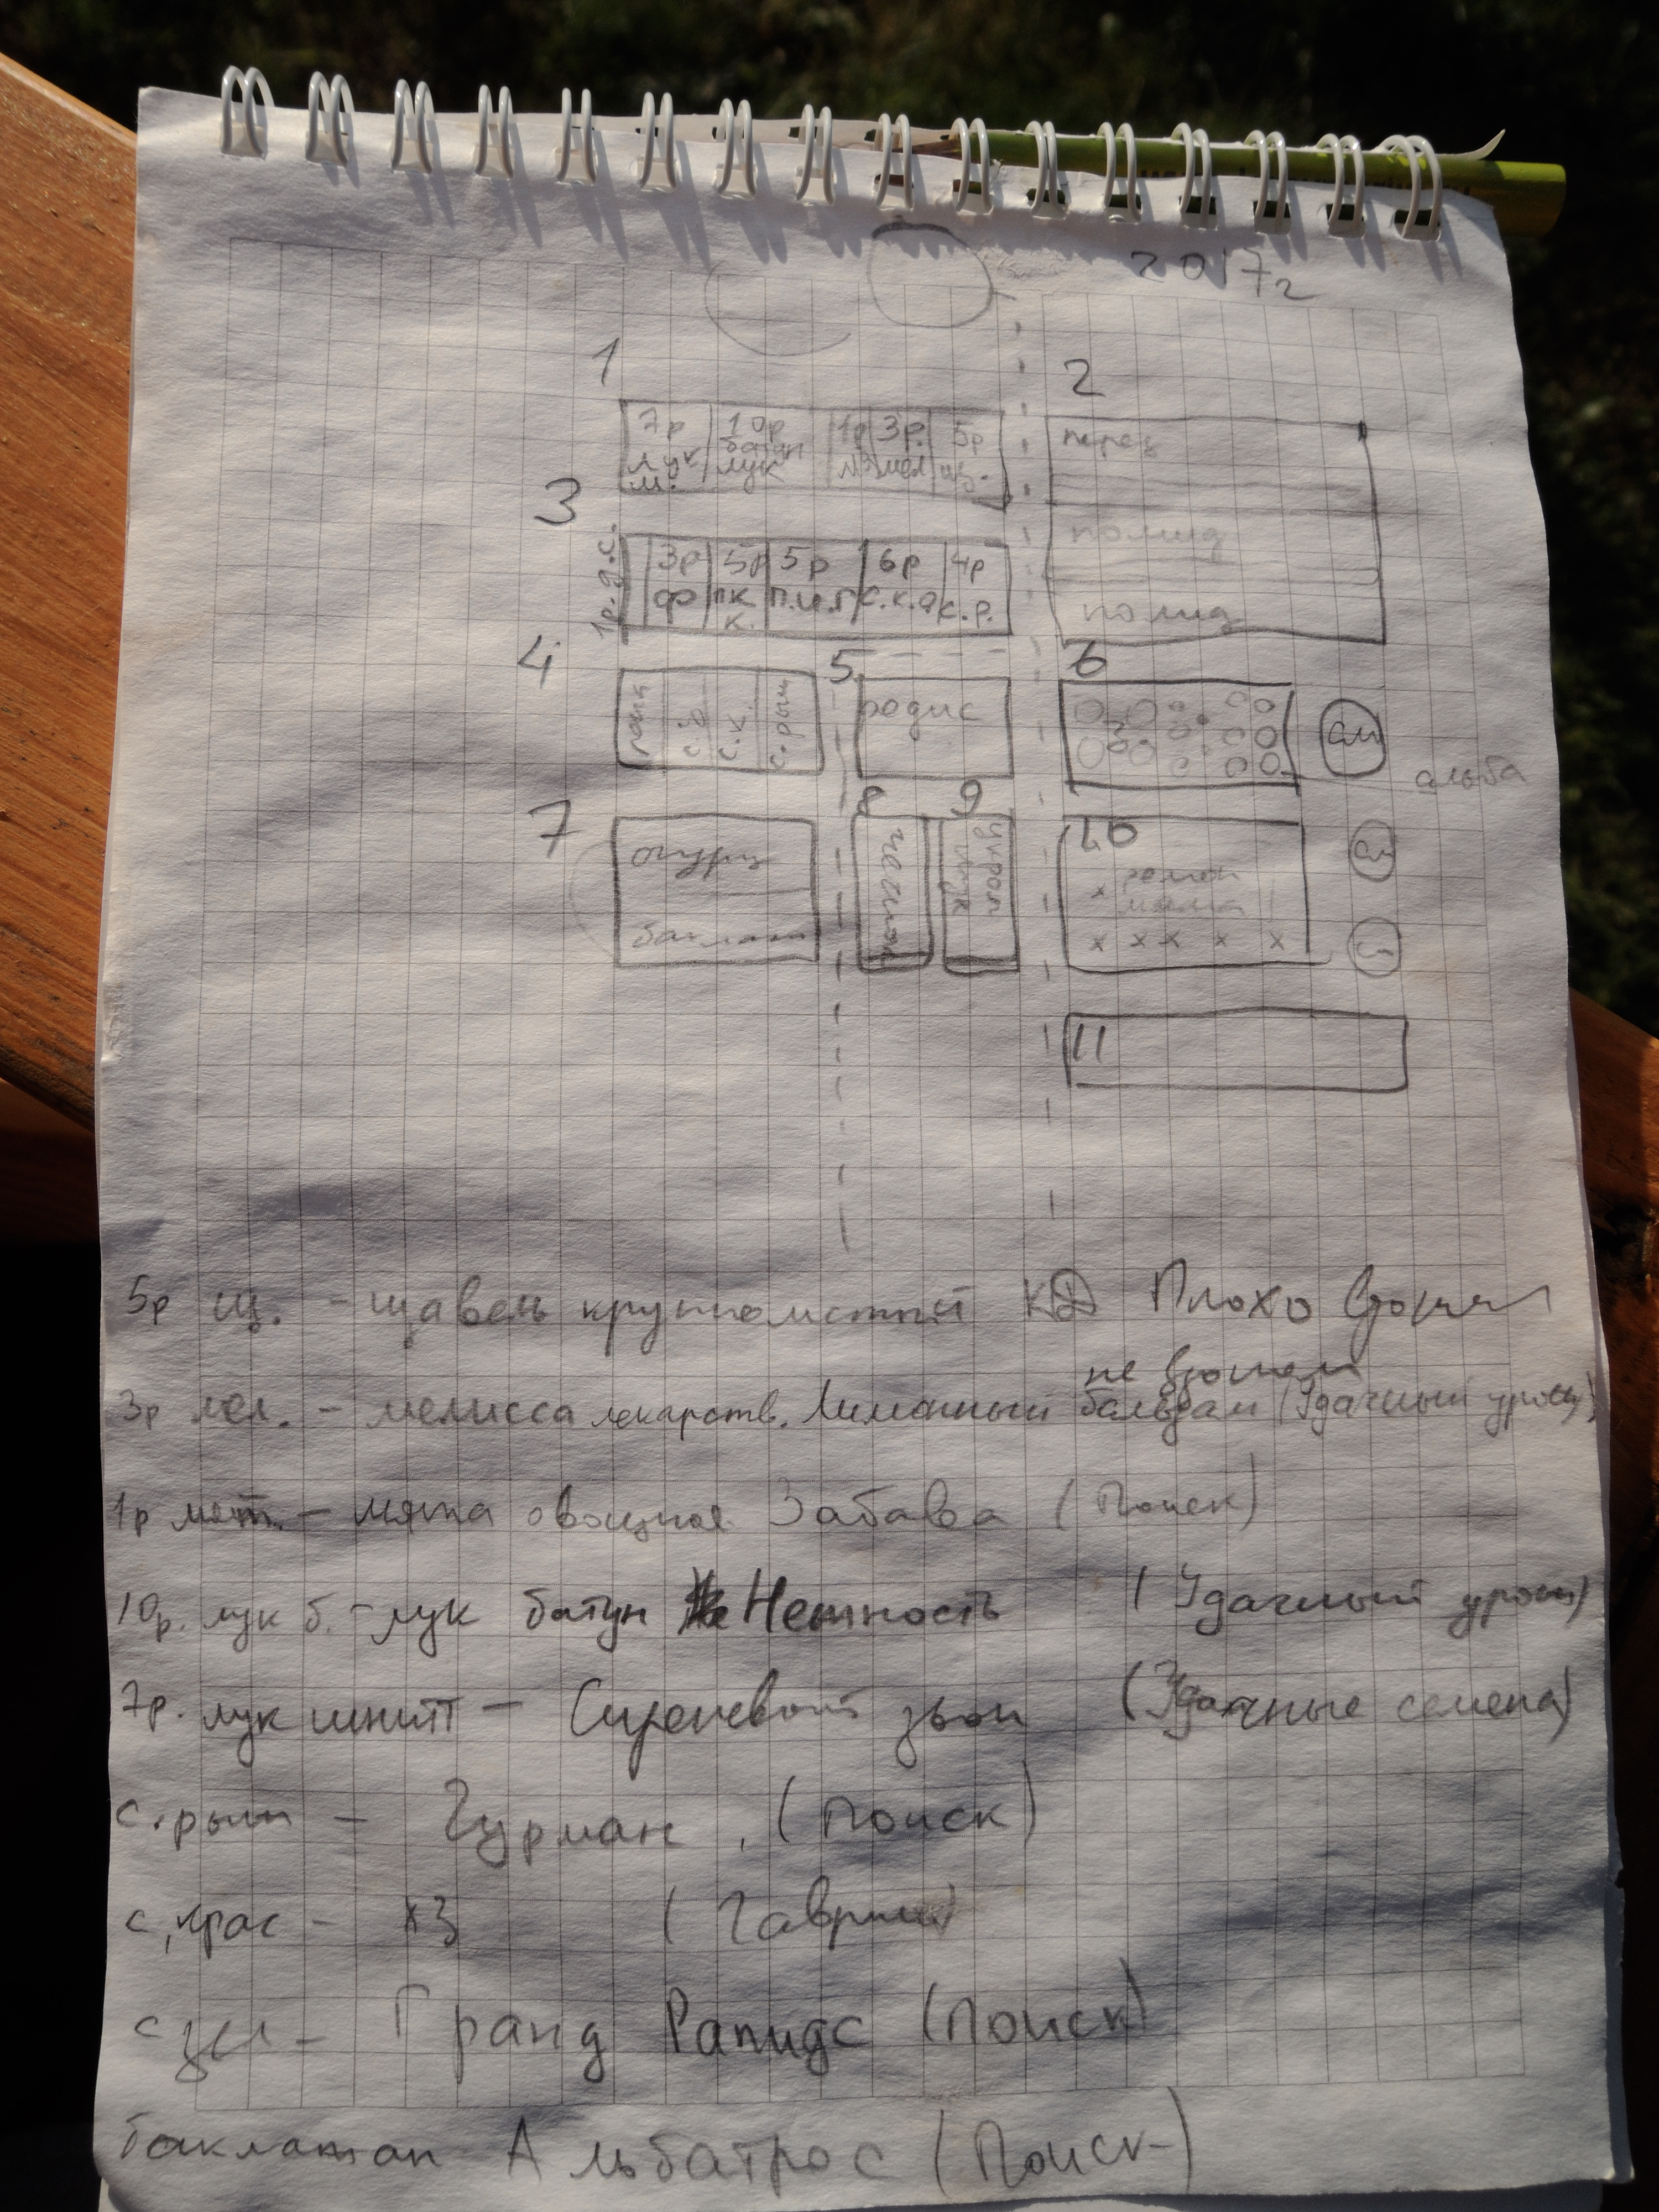 2017г
1
2
7р
10р
1р
3р.
5р
лук
батун
лук
мел
щ.
перец
3
помид
1р. д.с.
3р
5р
5р
6р
4р
ф
пк
к.
п.и.г
с.к.д
с.р.
помид
4
5
6
с.к.
с.рым
редис
ал
альба
7
8
9
10
огурц
чеснок
укроп
лук
баклаж
11
5р щ. - щавель крупнолистный Плохо взошел
не взошел
3р мел. - мелисса лекарств. Лимонный бальзам (Удачный урож)
1р мят. - мята овощная Забава (Поиск)
10р. лук б. - лук батун Нежность (Удачный урож)
7р. лук шнитт - Сиреневый звон (Удачные семена)
с.рым - Гурман (Поиск)
с.крас - хз (Гавриш)
с зел - Гранд Рапидс (Поиск)
баклажан Альбатрос (Поиск)